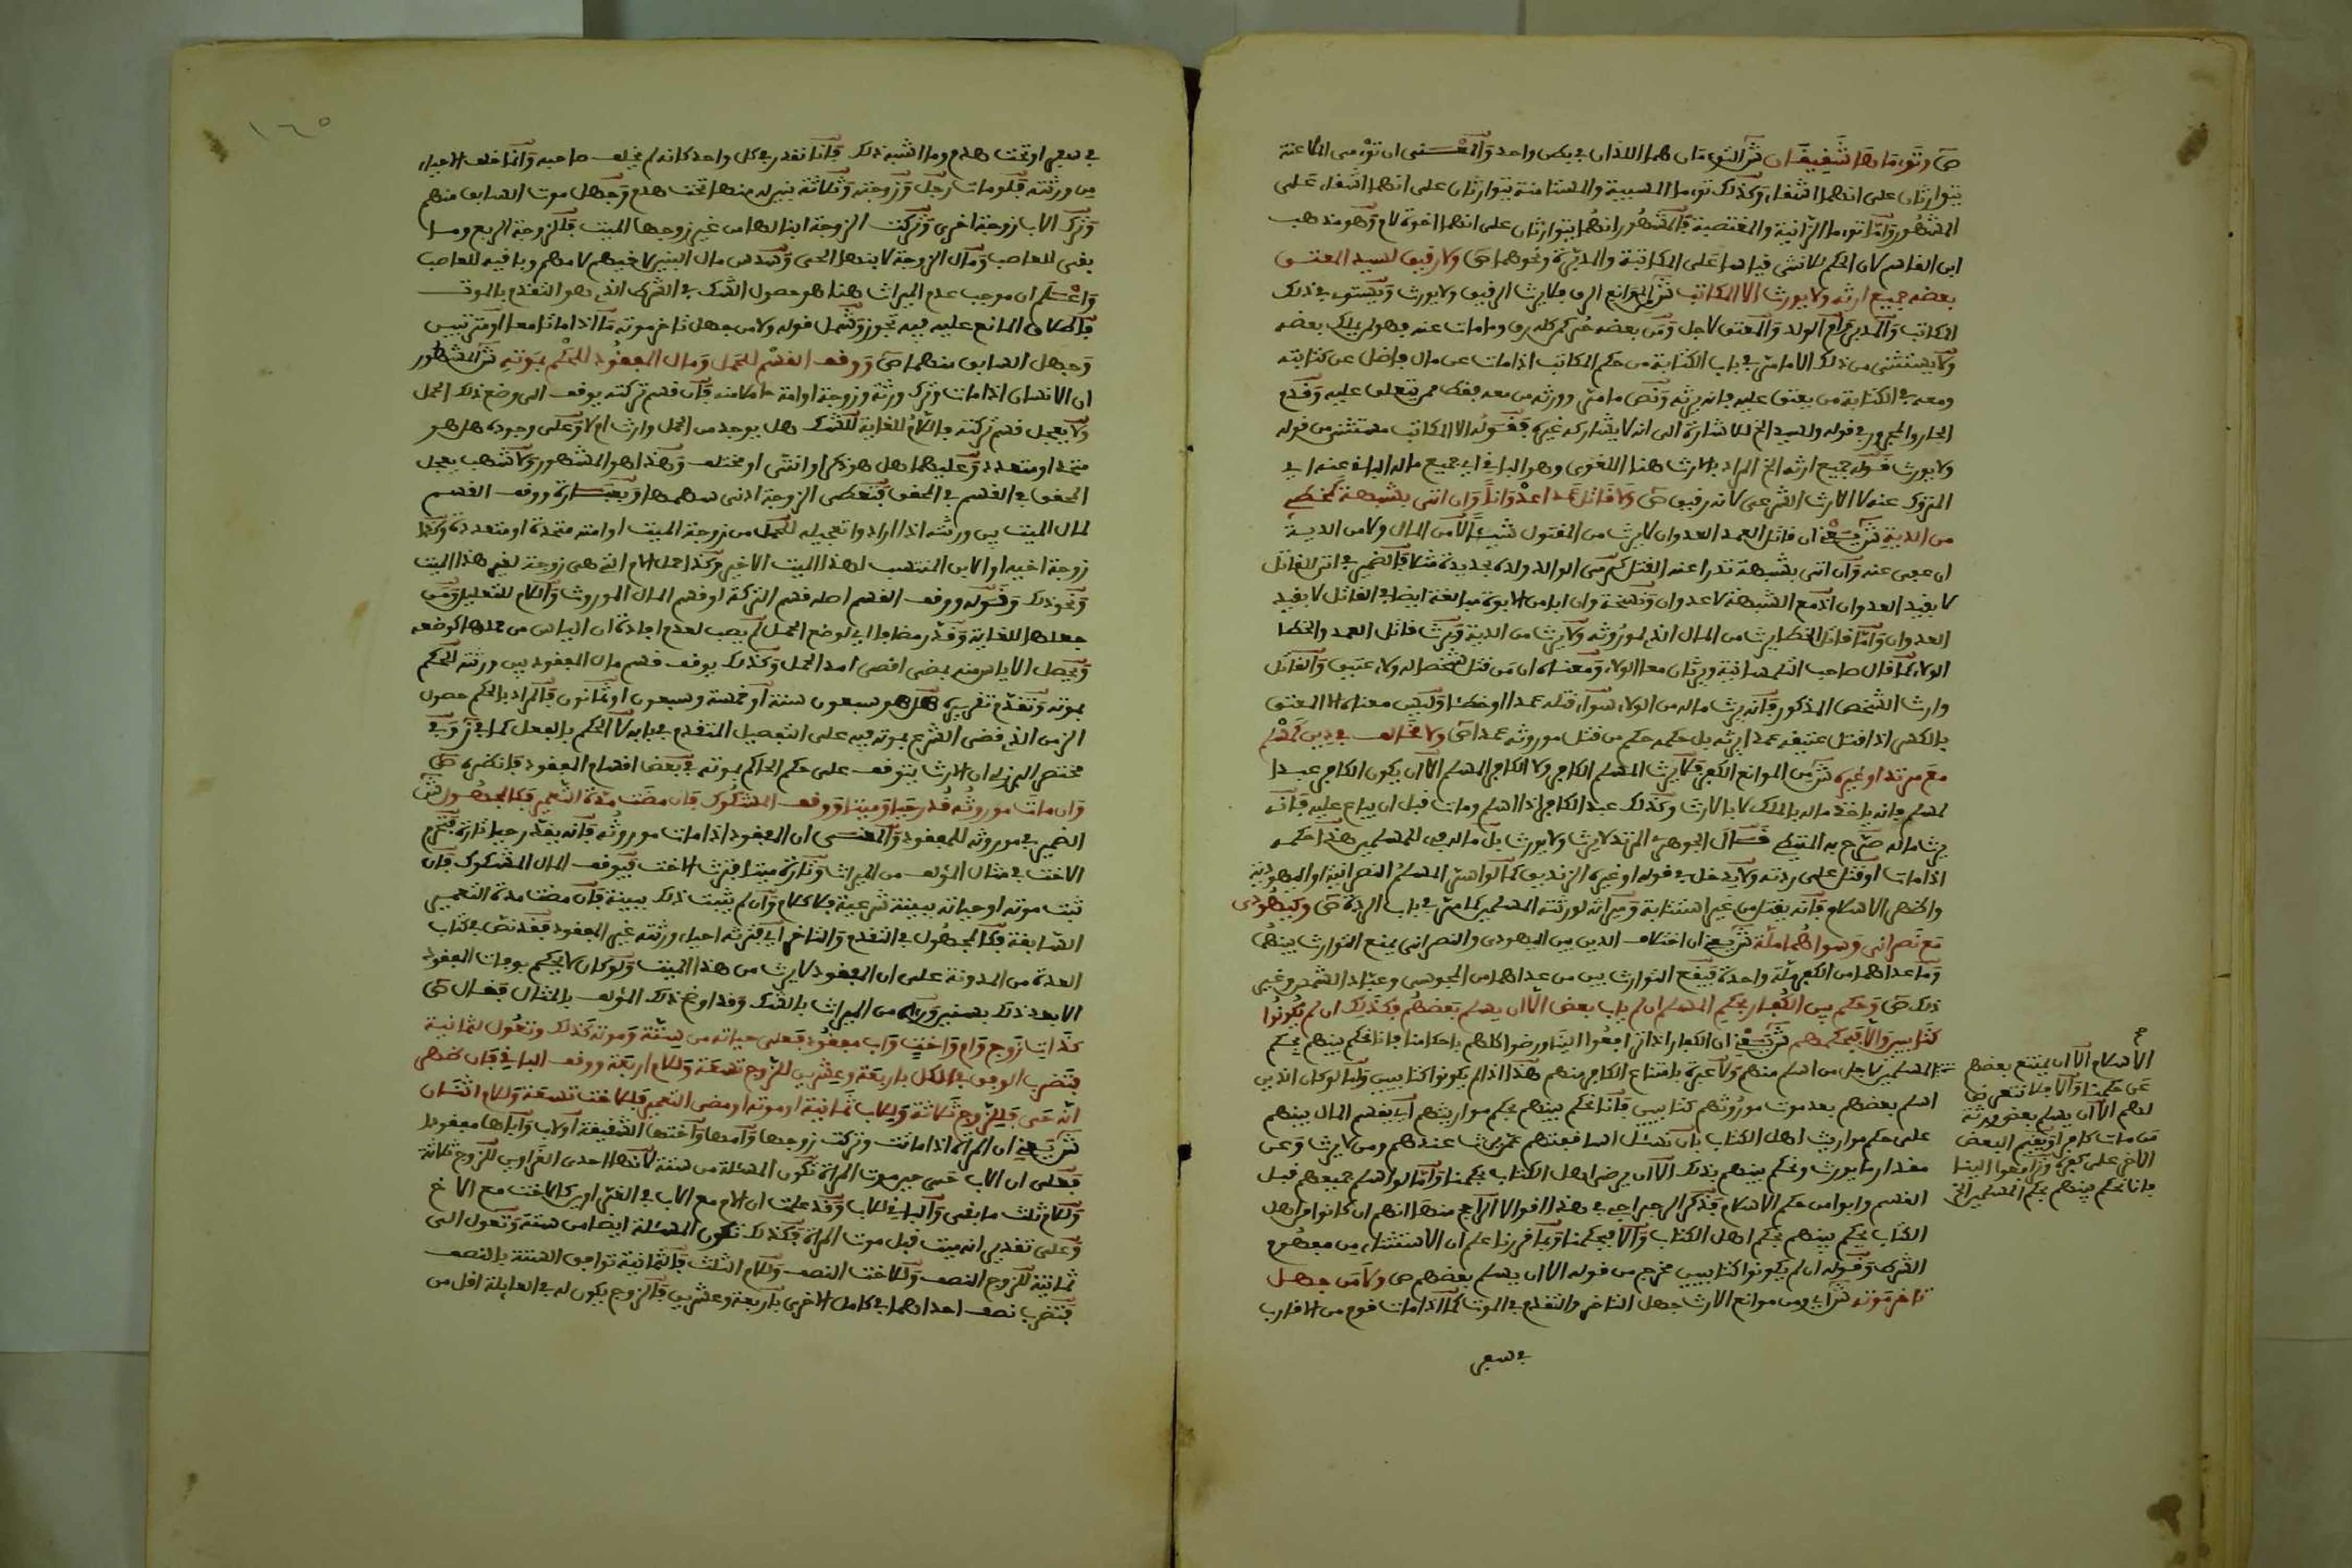 ص وتوءماها شقيقان ش التوءمان هما اللذان في بطن واحد والمعنى ان توءمى الملاعنة
يتوارثان على انهما اشقاء وكذلك توءما المسبية والمستامنة يتوارثان على انهما اشقاء على
المشهور واما توءما الزانية والمغتصبة فالمشهور انهما يتوارثان على انهما اخوة لام وهو مذهب
ابن القاسم لان الحكم للانثى فيهما على المكاتبة والمدبرة ونحوهما ص ولا رقيق لسيد المعتق
بعضه جميع ارثه ولا يورث الا المكاتب ش من الموانع الرق فلا يرث الرقيق ولا يورث ويستوى في ذلك
المكاتب والمدبر وام الولد والمعتق لاجل ومن بعضه حر كمن كله رق وما مات عنه فهو لمن يملك بعضه
ولا يستثنى من ذلك الا ما مر في باب الكتابة من حكم المكاتب اذا مات عن مال فاضل عن كتابته
ومعه في الكتابة من يعتق عليه فانه يرثه ونص ما مر وورثه من معه فقط ممن يعتق عليه وقدم
الجار والمجرور في قوله ولسيد الخ للاشارة الى انه لا يشاركه غيره فقوله الا المكاتب مستثنى من قوله
ولا يورث قوله جميع ارثه الخ المراد بالارث هنا اللغوى وهو الباقي اي جميع ماله الباقي عنه اي
المتروك عنه لا الارث الشرعى لانه رقيق ص ولا قاتل عمدا عدوانا وان اتى بشبهة كمخطئ
من الدية ش يعني ان قاتل العمد العدوان لا يرث من المقتول شيئا لا من المال ولا من الدية
ان عفى عنه وان اتى بشبهة تدرا عنه القتل كرمى الوالد ولده بحديدة مثلا فالضمير في اتى للقاتل
لا بقيد العدوان اذ مع الشبهة لا عدوان
العدوان واما قاتل الخطا يرث من المال الذي لموروثه ولا يرث من الدية ويرث قاتل العمد والخطا
الولاء كما قال صاحب التلمسانية ويرثان معا الولاء ومعناه ان من قتل شخصا له ولاء عتيق والقاتل
وارث الشخص المذكور فانه يرث ماله من الولاء سواء قتله عمدا او خطئا وليس معناه ان المعتق
بالكسر اذا قتل عتيقه عمدا يرثه بل حكمه حكم من قتل موروثه عمدا ص ولا مخالف في دين كمسلم
مع مرتد او غيره ش من الموانع الكفر فلا يرث المسلم الكافر ولا الكافر المسلم الا ان يكون الكافر عبدا
لمسلم فانه ياخذ ماله بالملك لا بالارث وكذلك عبد الكافر اذا اسلم ومات قبل ان يباع عليه فانه
يرث ماله صرح به المتيطى قال الجوهرى المرتد لا يرث ولا يورث بل ماله فىء للمسلمين هذا حكمه
اذا مات او قتل على ردته ولا يدخل في قوله او غيره الزنديق كما لو اسر المسلم النصرانية او اليهودية
واظهر الاسلام فانه يقتل من غير استتابة وميراثه لورثته المسلمين كما مر في باب الردة ص وكيهودى
مع نصرانى وسواهما ملة ش يعني ان اختلاف الدين بين اليهودى والنصرانى يمنع التوارث بينهما
وما عداهما من الكفر ملة واحدة فيقع التوارث بين من عداهما من المجوسى وعباد الشمس وغير
ذلك ص وحكم بين الكفار بحكم المسلم ان لم ياب بعض الا ان يسلم بعضهم فكذلك ان لم يكونوا
كتابيين والا فبحكمهم ش يعني ان الكفار اذا ترافعوا الينا ورضوا كلهم باحكامنا فانا نحكم بينهم بحكم
المسلمين لاجل من اسلم منهم ولا عبرة بامتناع الكافر منهم هذا اذا لم يكونوا كتابيين واما لو كان الذين
اسلم بعضهم بعد موت موروثهم كتابيين فانا نحكم بينهم بحكم مواريثهم اي يقسم المال بينهم
على حكم مواريث اهل الكتاب بان نسئل اساقفتهم عمن يرث عندهم ومن لا يرث وعن
مقدار ما يورث ونحكم بينهم بذلك الا ان يرضى اهل الكتاب بحكمنا واما لو اسلم جميعهم قبل
القسم وابوا من حكم الاسلام فذكر الرجراجي في هذا اقوالا الراجح منها انهم ان كانوا من اهل
الكتاب يحكم بينهم بحكم اهل الكتاب والا فبحكمنا وبما قررنا علم ان الاستثناء من مفهوم
الشرط وقوله ان لم يكونوا كتابيين مخرج من قوله الا ان يسلم بعضهم ص ولا من جهل
تاخر موته ش اي ومن موانع الارث جهل التاخر والتقدم في الموت كما اذا مات قوم من الاقارب
في سفر
الاسلام الا ان يمتنع بعضهم
من حكمنا والا فلا نتعرض
لهم الا ان يسلم بعض ورثة
من مات كافرا ويقيم البعض
الاخر على كفره وترافعوا الينا
فانا نحكم بينهم بحكم المسلمين الخ
١٦٥
في سفر او تحت هدم وما اشبه ذلك فانا نقدر في كل واحد كانه لم يخلف صاحبه وانما خلف الاحياء
من ورثته فلو مات رجل وزوجته وثلاثة بنين له منها تحت هدم وجهل موت السابق منهم
وترك الاب زوجة اخرى وتركت الزوجة ابنا لها من غير زوجها الميت فللزوجة الربع وما
بقى للعاصب ومال الزوجة لابنها الحى وسدس مال البنين لاخيهم لامهم وباقيه للعاصب
واعلم ان موجب عدم الميراث هنا هو حصول الشك في الشرط الذي هو التقدم بالموت
فاطلاق المانع عليه فيه تجوز وشمل قوله ولا من جهل تاخر موته ما اذا ماتا معا او مترتبين
وجهل السابق منهما ص ووقف القسم للحمل ومال المفقود للحكم بموته ش المشهور
ان الانسان اذا مات وترك ورثة وزوجة او امة حاملا منه فان قسم تركته يوقف الى وضع ذلك الحمل
ولا يعجل قسم تركته فاللام للغاية للشك هل يوجد من الحمل وارث ام لا وعلى وجوده هل هو
متحد او متعدد وعليهما هل هو ذكر او انثى او مختلف وهذا هو المشهور ولاشهب يعجل
المحقق في القسم في المحقق فتعطى الزوجة ادنى سهمها وبعبارة ووقف القسم
لمال الميت بين ورثته اذا ارادوا تعجيله للحمل من زوجة الميت او امته متحدة او متعددة وكذا
زوجة اخيه او الابن المنتسب لهذا الميت الاخير وكذا حمل الام التي هى زوجة لغير هذا الميت
ونحو ذلك وقوله ووقف القسم اصله قسم التركة او قسم المال الموروث واللام للتعليل ومن
جعلها للغاية وقدر مضافا اي لوضع الحمل لم يصب لعدم افادة ان الياس من حملها كوضعه
ويحصل الاياس منه بمضى اقصى امد الحمل وكذلك يوقف قسم مال المفقود بين ورثته للحكم
بموته وتقدم تقريره هل هو سبعون سنة او خمسة وسبعون او ثمانون فالمراد بالحكم حصول
الزمن الذي قضى الشرع بموته فيه على التفصيل المتقدم في بابه لا الحكم بالفعل كما في ز وفي
مختصر البرزلى ان الارث يتوقف على حكم الحاكم بموته في بعض اقسام المفقود فانظره ص
وان مات موروثه قدر حيا وميتا ووقف المشكوك فان مضت مدة التعمير فكالمجهول ش
الضمير في موروثه للمفقود والمعنى ان المفقود اذا مات موروثه فانه يقدر حيا تارة فتحرم
الاخت في مثال المؤلف من الميراث وتارة ميتا فترث الاخت فيوقف المال المشكوك فان
ثبت موته او حياته ببينة شرعية فلا كلام وان لم يثبت ذلك ببينة فان مضت مدة التعمير
السابقة فكالمجهول في التقدم والتاخر اي فترثه احياء ورثته غير المفقود فقد نص في كتاب
العدة من المدونة على ان المفقود لا يرث من هذا الميت ولو كان لا يحكم بوفات المفقود
الا بعد ذلك بسنين من الميراث بالشك وقد اوضح ذلك المؤلف بالمثال فقال ص
كذات زوج وام واخت واب مفقود فعلى حياته من ستة وموته كذلك وتعول لثمانية
فتضرب الوفق في الكل باربعة وعشرين للزوج تسعة وللام اربعة ووقف الباقي فان ظهر
انه حى فللزوج ثلاثة وللاب ثمانية او موته او مضى التعمير فللاخت تسعة وللام اثنان
ش يعني ان المراة اذا ماتت وتركت زوجها وامها واختها الشقيقة او لاب وابا مفقودا
فعلى ان الاب حى حين موت المراة تكون المسئلة من ستة لانها احدى الغراوين للزوج ثلاثة
وللام ثلث ما بقى والباقي للاب وقد علمت ان الام مع الاب في الغراوين كالاخت مع الاخ
وعلى تقدير انه ميت قبل موت المراة فكذلك تكون المسئلة ايضا من ستة وتعول الى
ثمانية للزوج النصف وللاخت النصف وللام الثلث فالثمانية توافق الستة بالنصف
فتضرب نصف احداهما في كامل الاخرى باربعة وعشرين فالزوج يكون له في العايلة اقل من